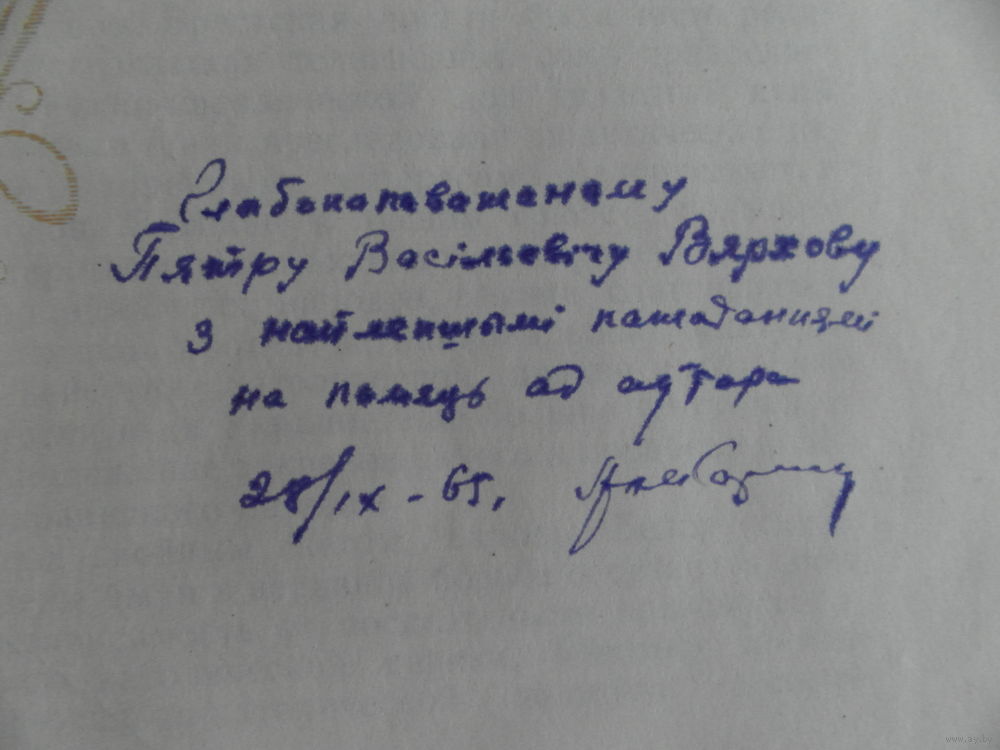 Глыбокапаважанаму
Пятру Васільевічу Вярхову
з найлепшымі пажаданнямі
на памяць ад аўтара
28/IX – 65.
www.ay.by